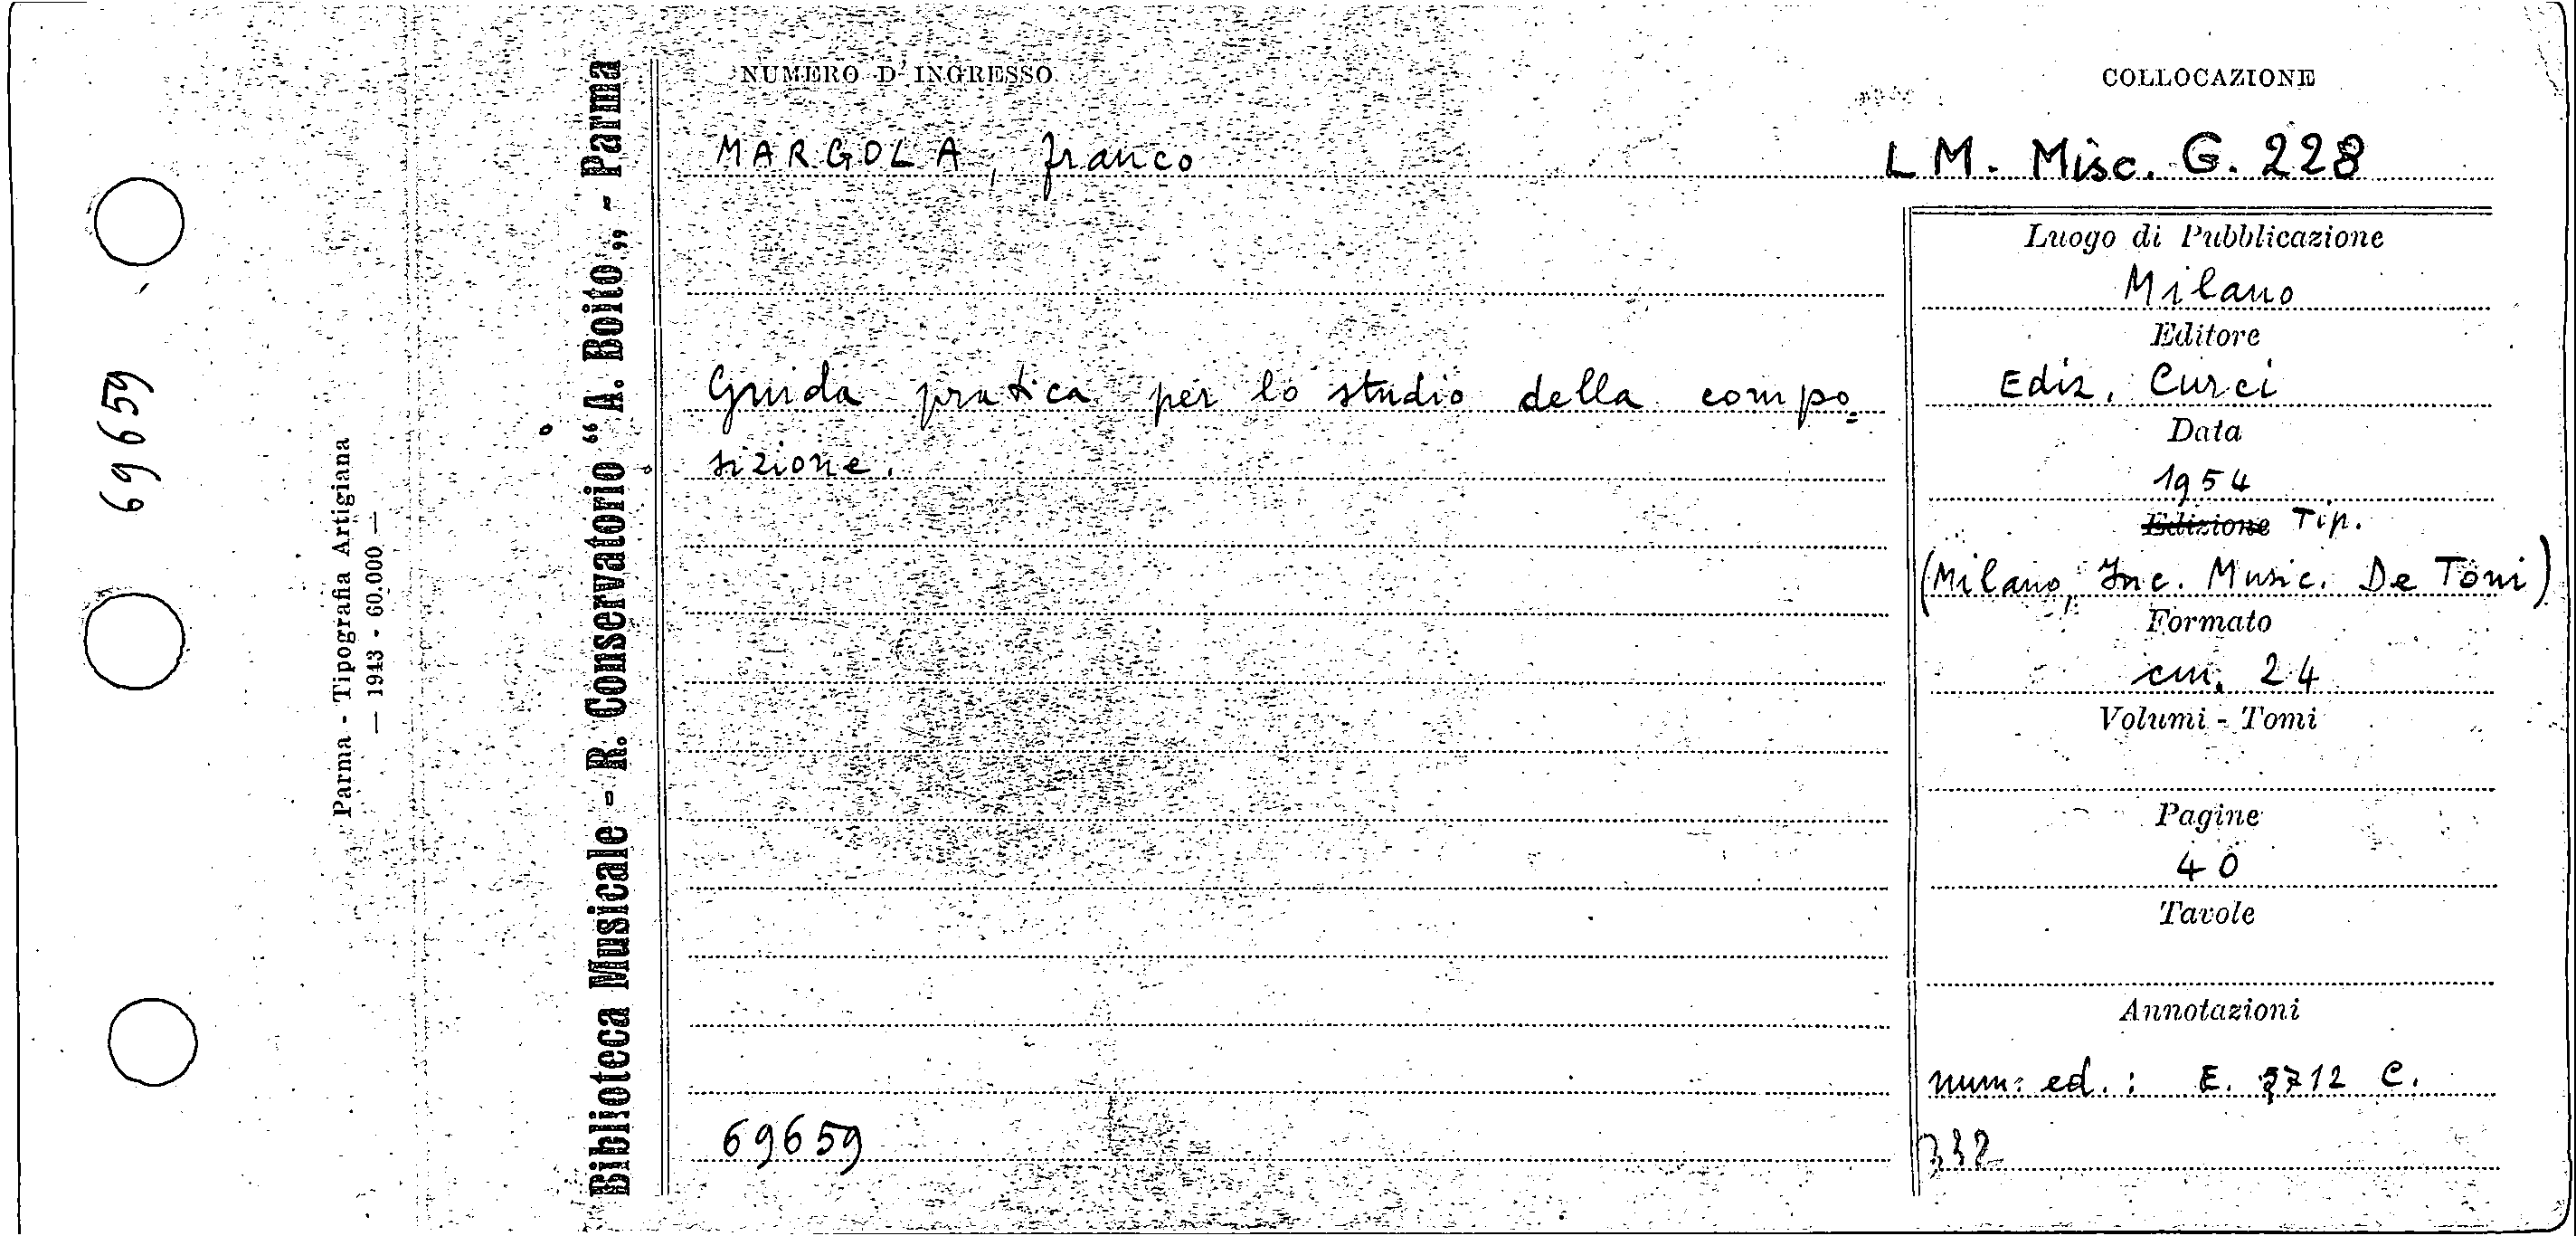 69659
Parma - Tipografia Artigiana
— 1943 - 60.000 —
Biblioteca Musicale - R. Conservatorio “ A. Boito „ - Parma
NUMERO D'INGRESSO
MARGOLA, Franco
Guida pratica per lo studio della compo=
sizione.
69659
COLLOCAZIONE
LM. Misc. G. 228
Luogo di Pubblicazione
Milano
Editore
Ediz. Curci
Data
1954
Edizione Tip.
(Milano, Inc. Music. De Toni)
Formato
cm. 24
Volumi - Tomi
Pagine
40
Tavole
Annotazioni
num. ed.: E. 5712 C.
332